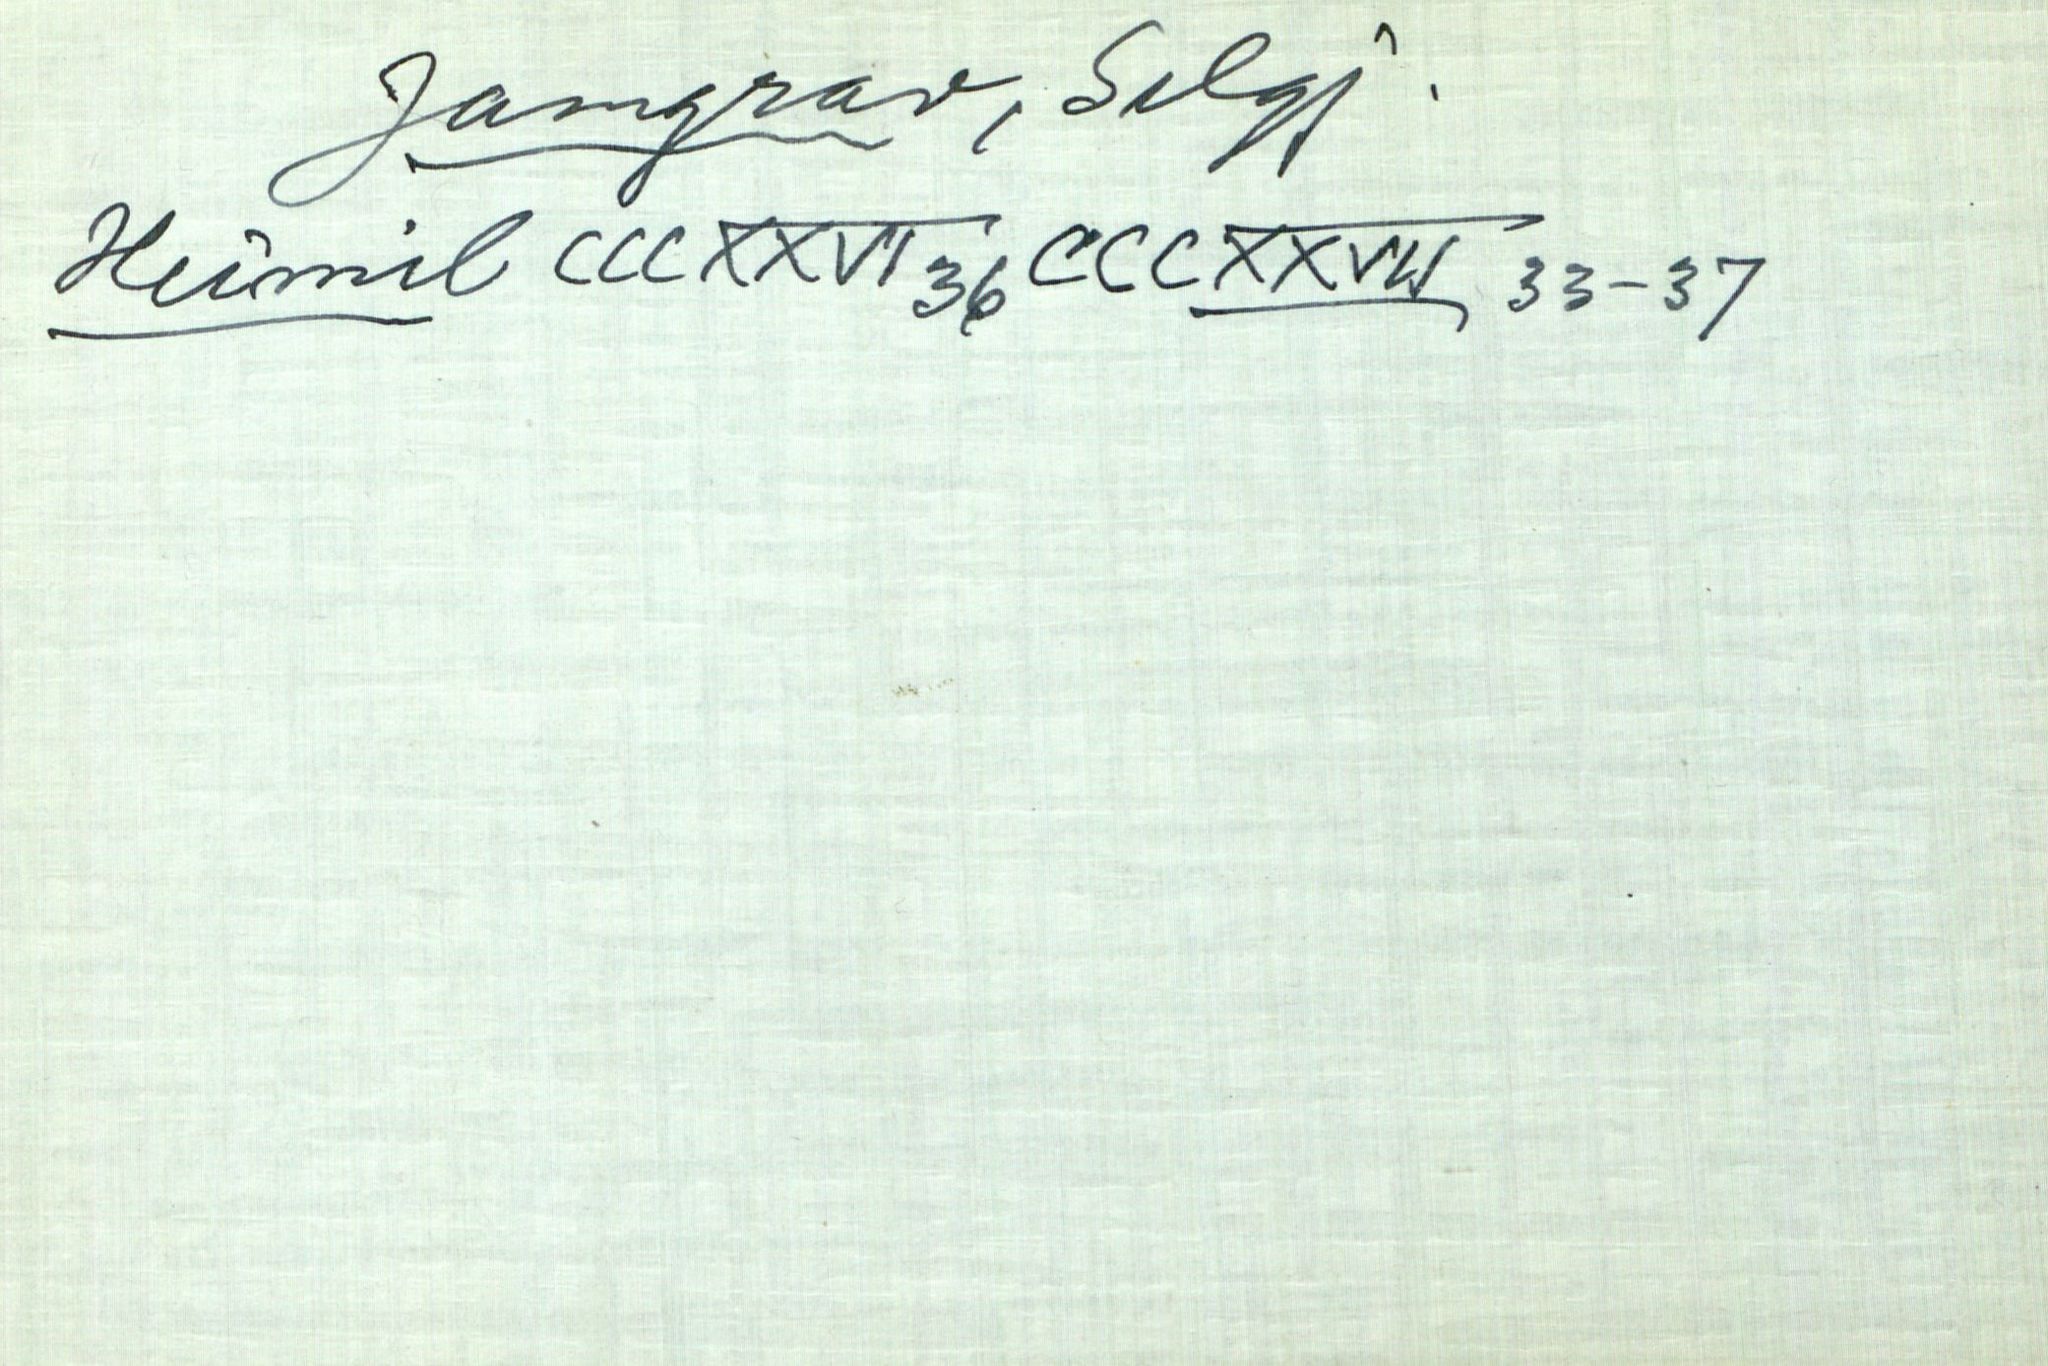 Jamgrav, Selgj.
Heimil CCCXXVI 36 CCCXXVII 33-37